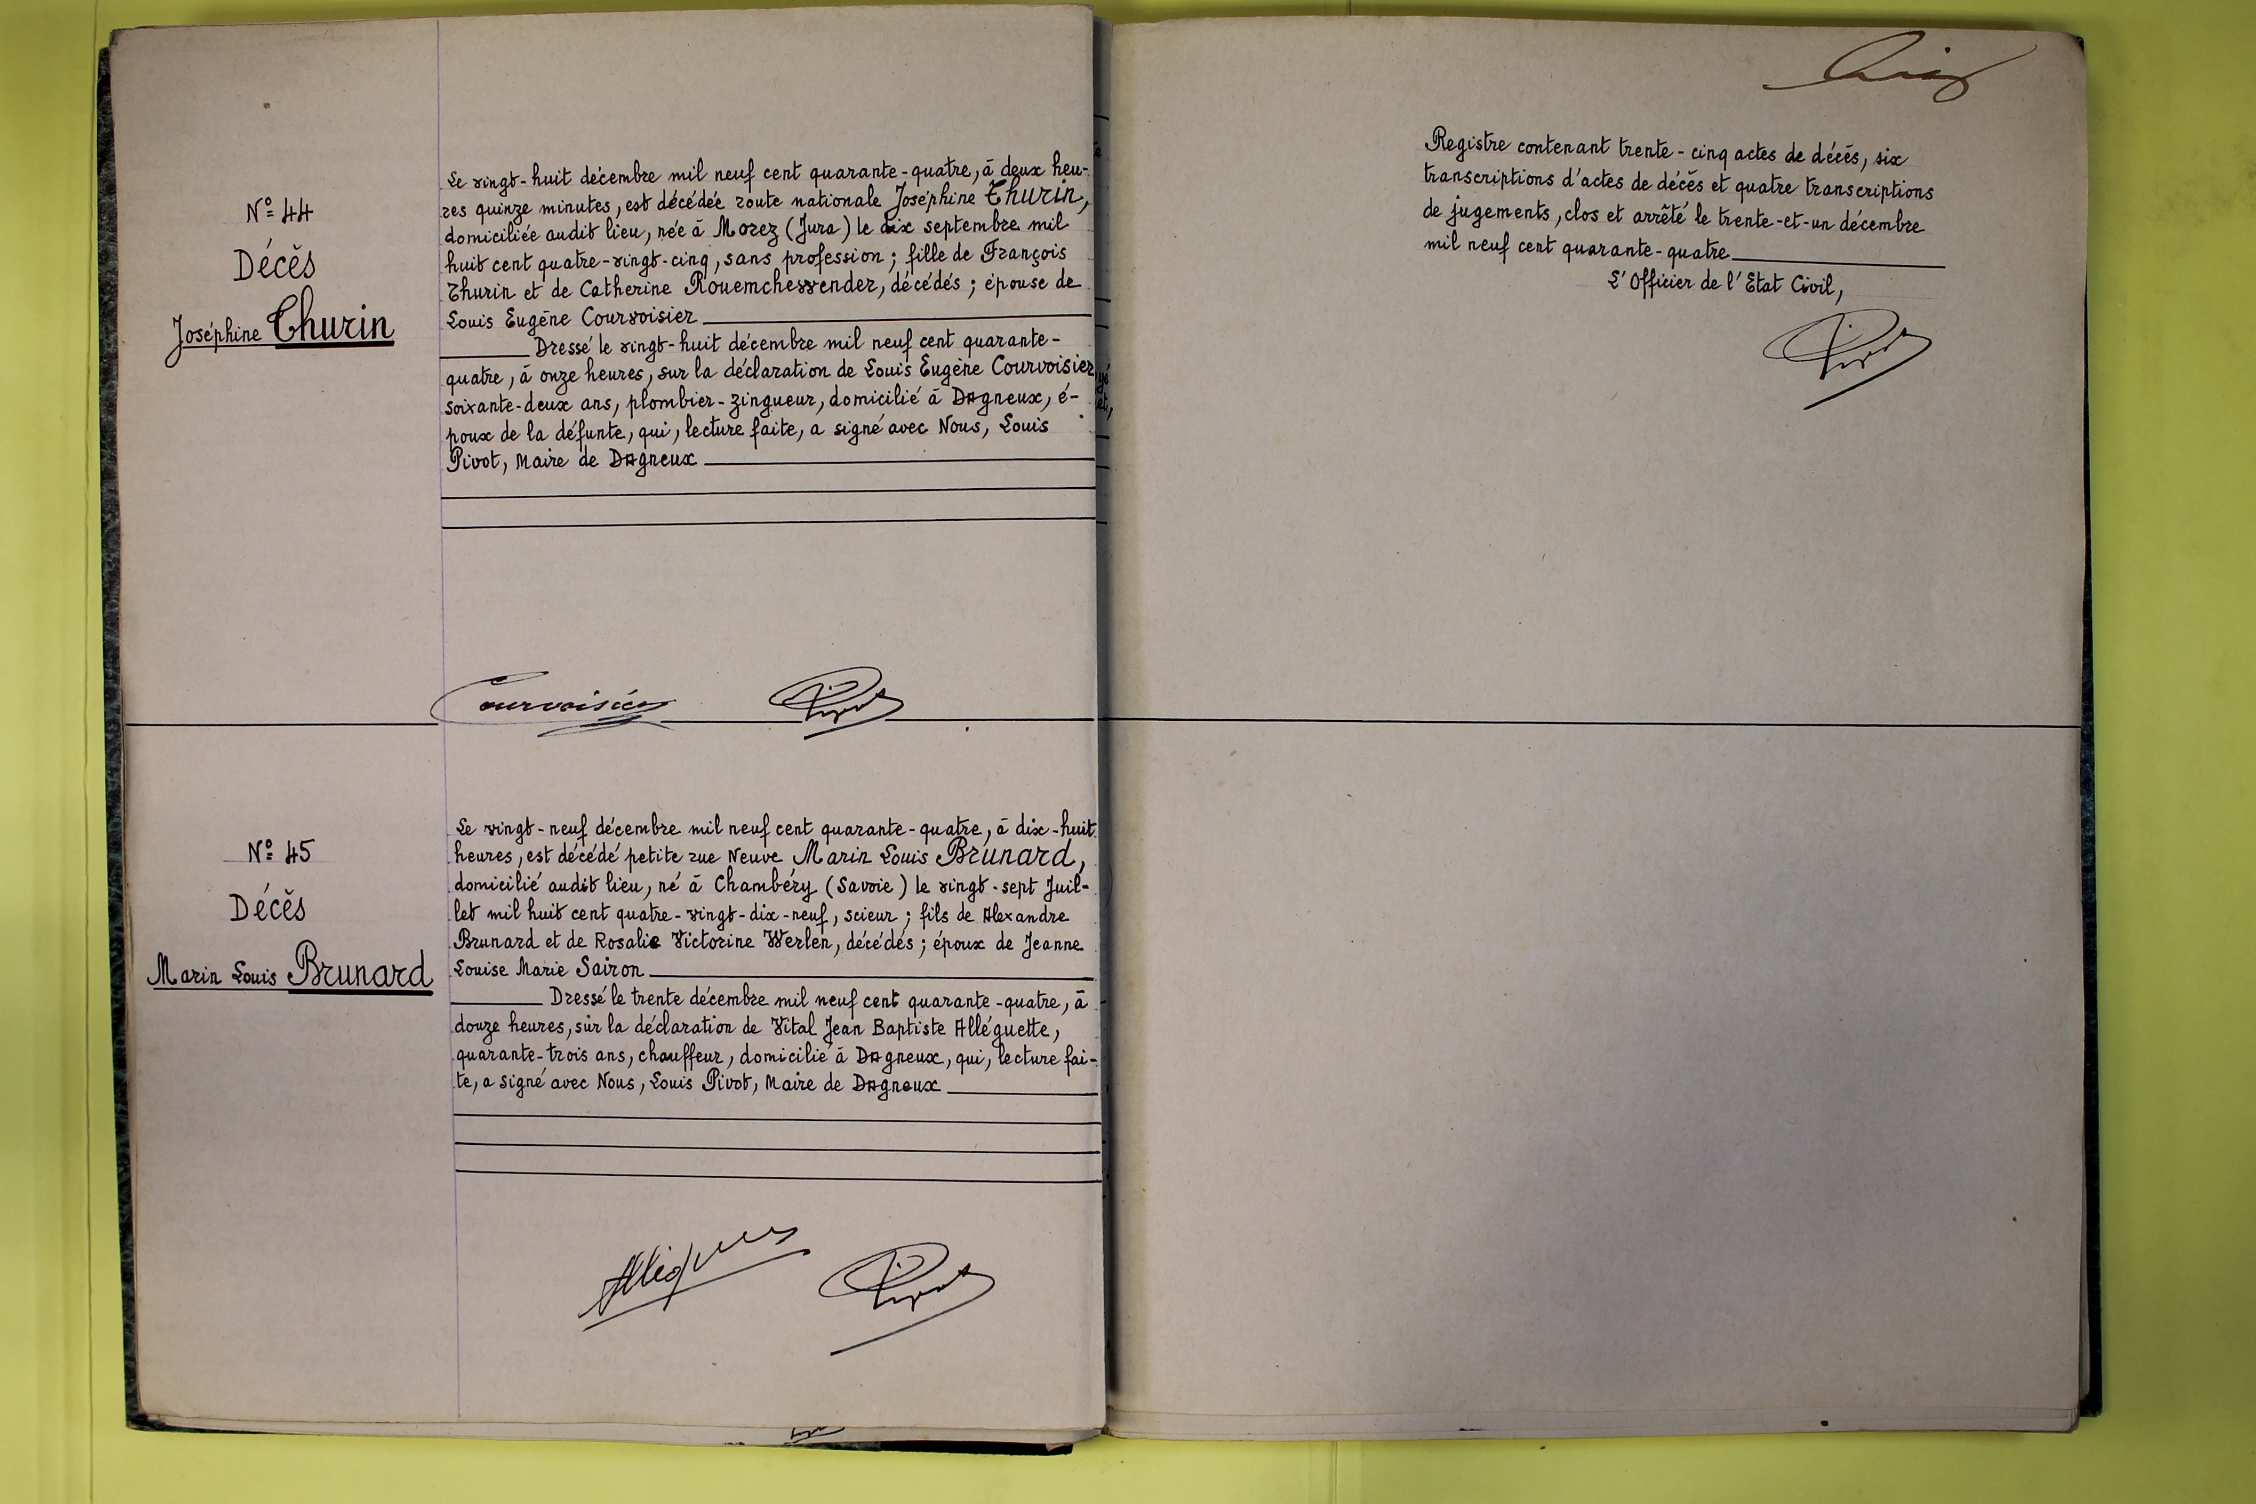 N° 44
Décès
Joséphine Thurin
Le vingt-huit décembre mil neuf cent quarante-quatre, à deux heu-
res quinze minutes, est décédée route nationale Joséphine Thurin,
domiciliée audit lieu, née à Morez (Jura) le dix septembre mil
huit cent quatre-vingt-cinq, sans profession ; fille de François
Thurin et de Catherine Rouemchewender, décédés ; épouse de
Louis Eugène Courvoisier
Dressé le vingt-huit décembre mil neuf cent quarante-
quatre, à onze heures, sur la déclaration de Louis Eugène Courvoisier
soixante-deux ans, plombier-zingueur, domicilié à Dagneux, é-
poux de la défunte, qui, lecture faite, a signé avec Nous, Louis
Pivot, Maire de Dagneux
Courvoisier Pivot
N° 45
Décès
Marin Louis Brunard
Le vingt-neuf décembre mil neuf cent quarante-quatre, à dix-huit
heures, est décédé petite rue Neuve Marin Louis Brunard,
domicilié audit lieu, né à Chambéry (Savoie) le vingt-sept Juil-
let mil huit cent quatre-vingt-dix-neuf, scieur ; fils de Alexandre
Brunard et de Rosalie Victorine Werlen, décédés ; époux de Jeanne
Louise Marie Sairon
Dressé le trente décembre mil neuf cent quarante-quatre, à
douze heures, sur la déclaration de Vital Jean Baptiste Alléguette,
quarante-trois ans, chauffeur, domicilié à Dagneux, qui, lecture fai-
te, a signé avec Nous, Louis Pivot, Maire de Dagneux
Pivot
Registre contenant trente-cinq actes de décès, six
transcriptions d'actes de décès et quatre transcriptions
de jugements, clos et arrêté le trente-et-un décembre
mil neuf cent quarante-quatre
L'Officier de l'Etat Civil,
Pivot